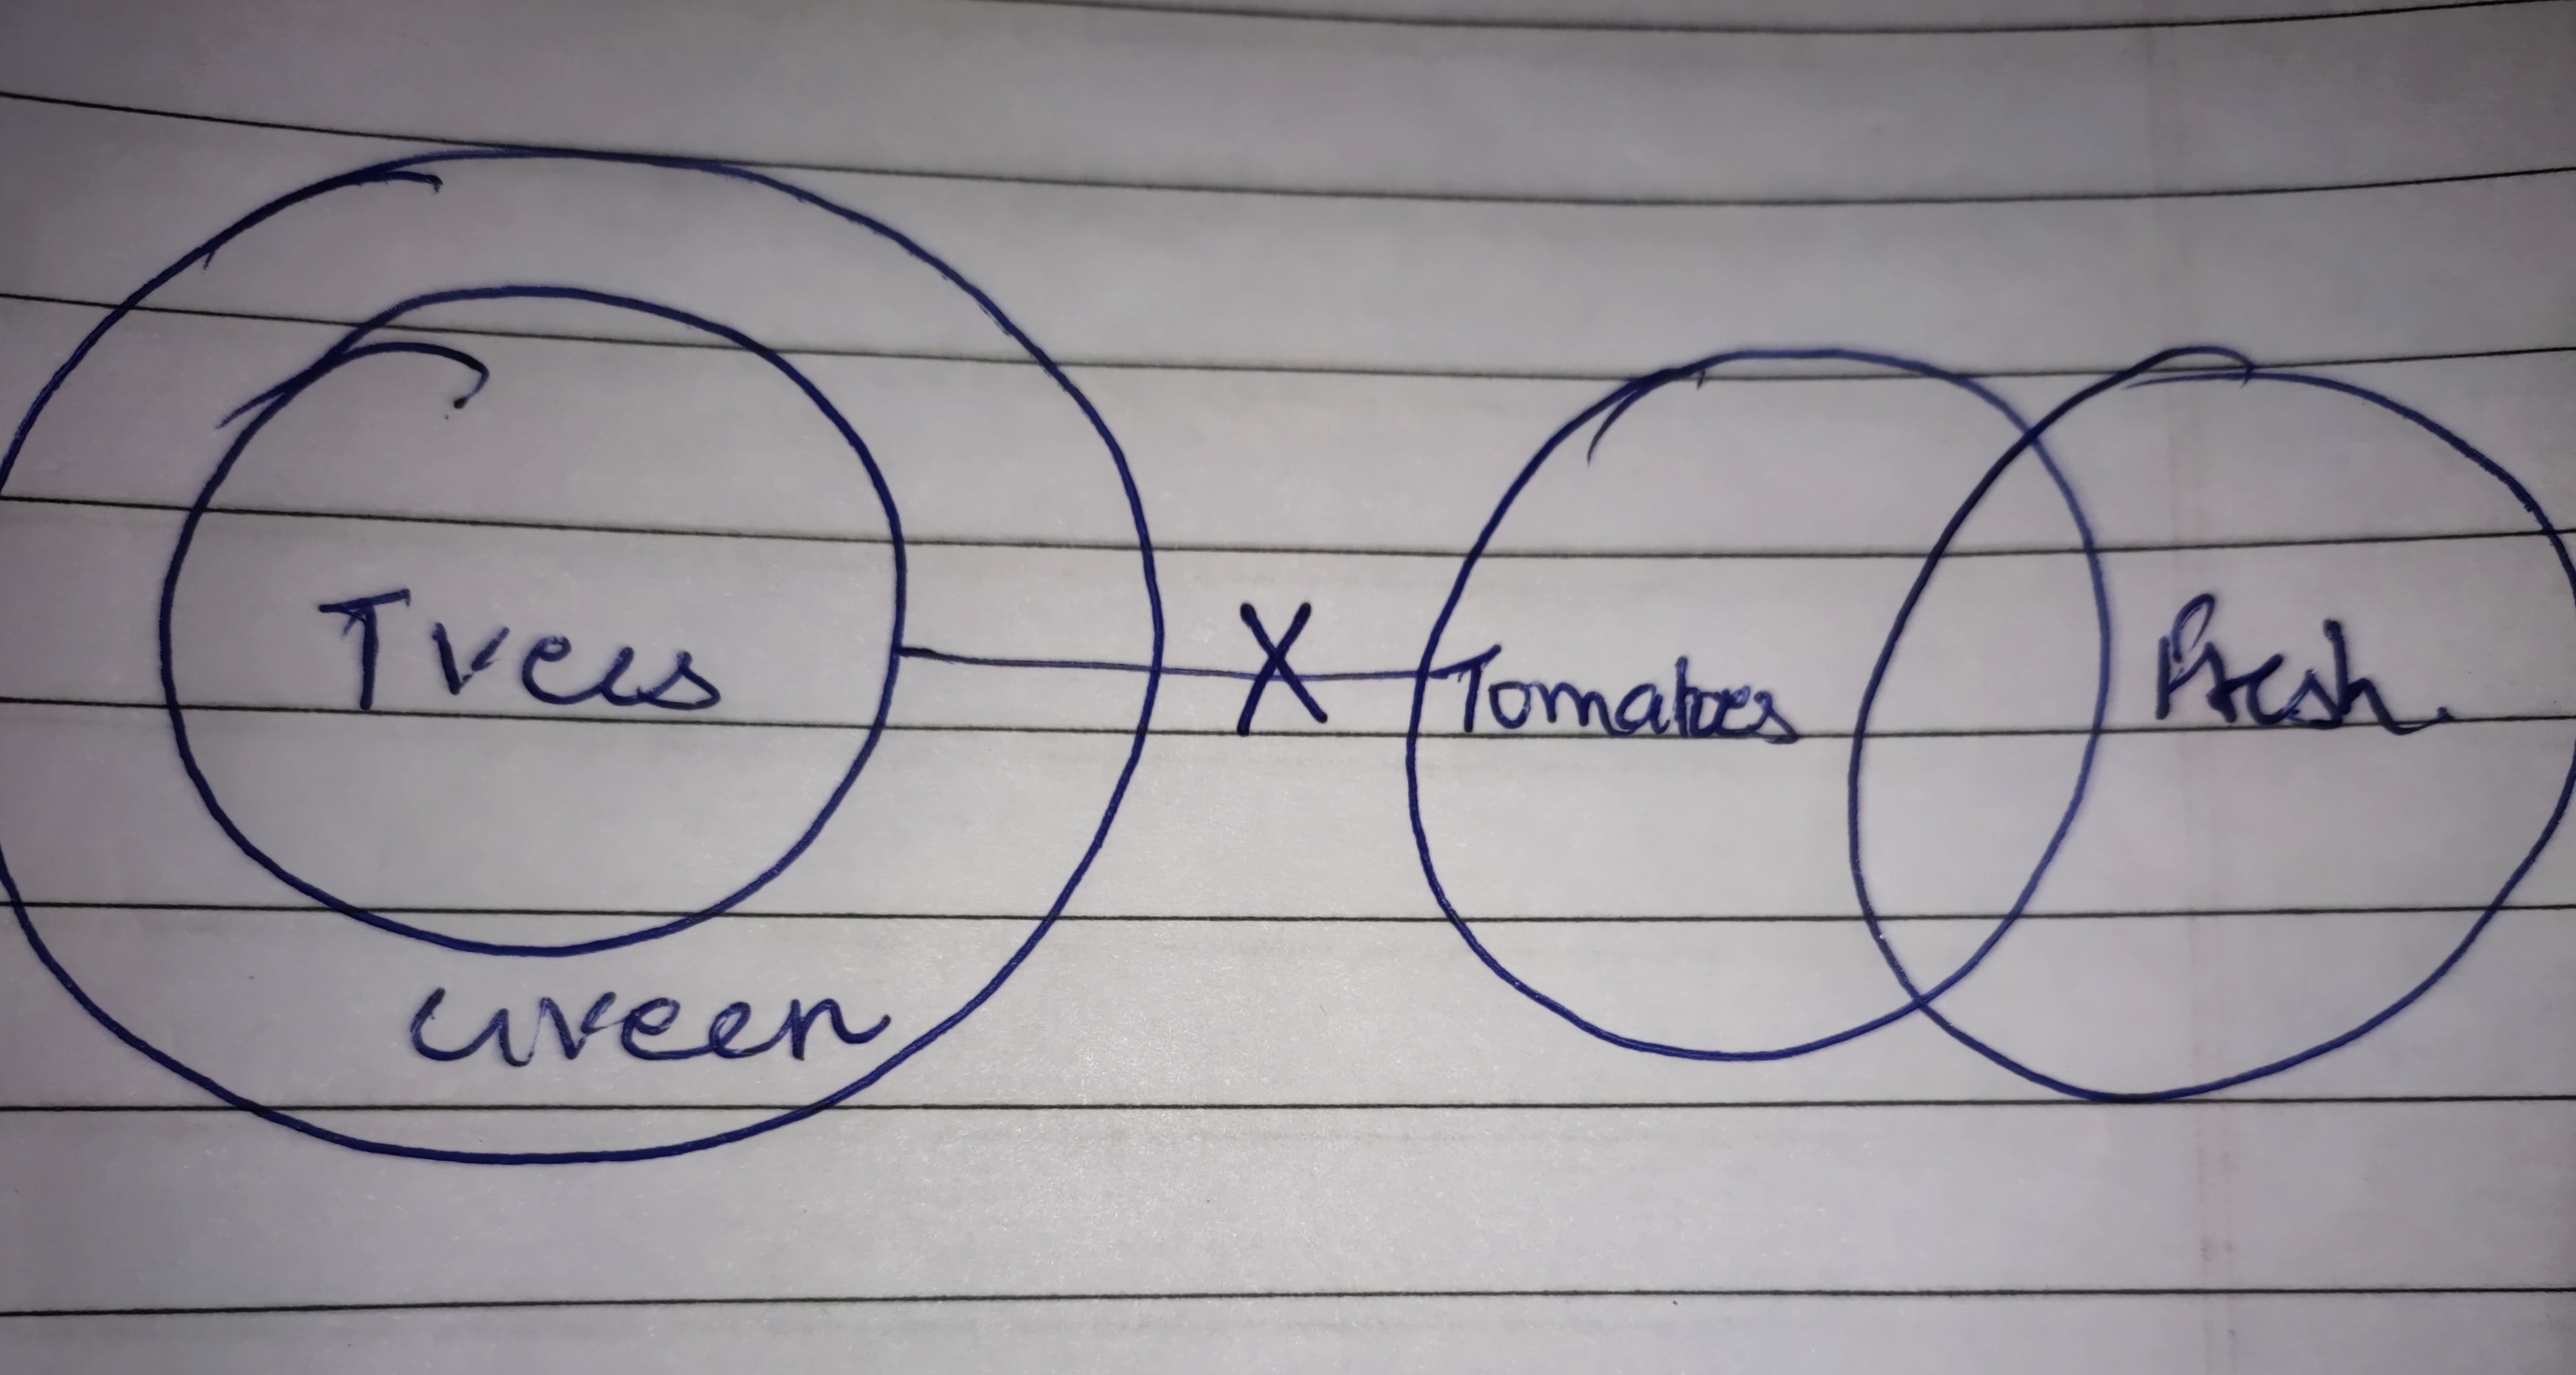 Trees
X
Tomatoes
Fresh
Green